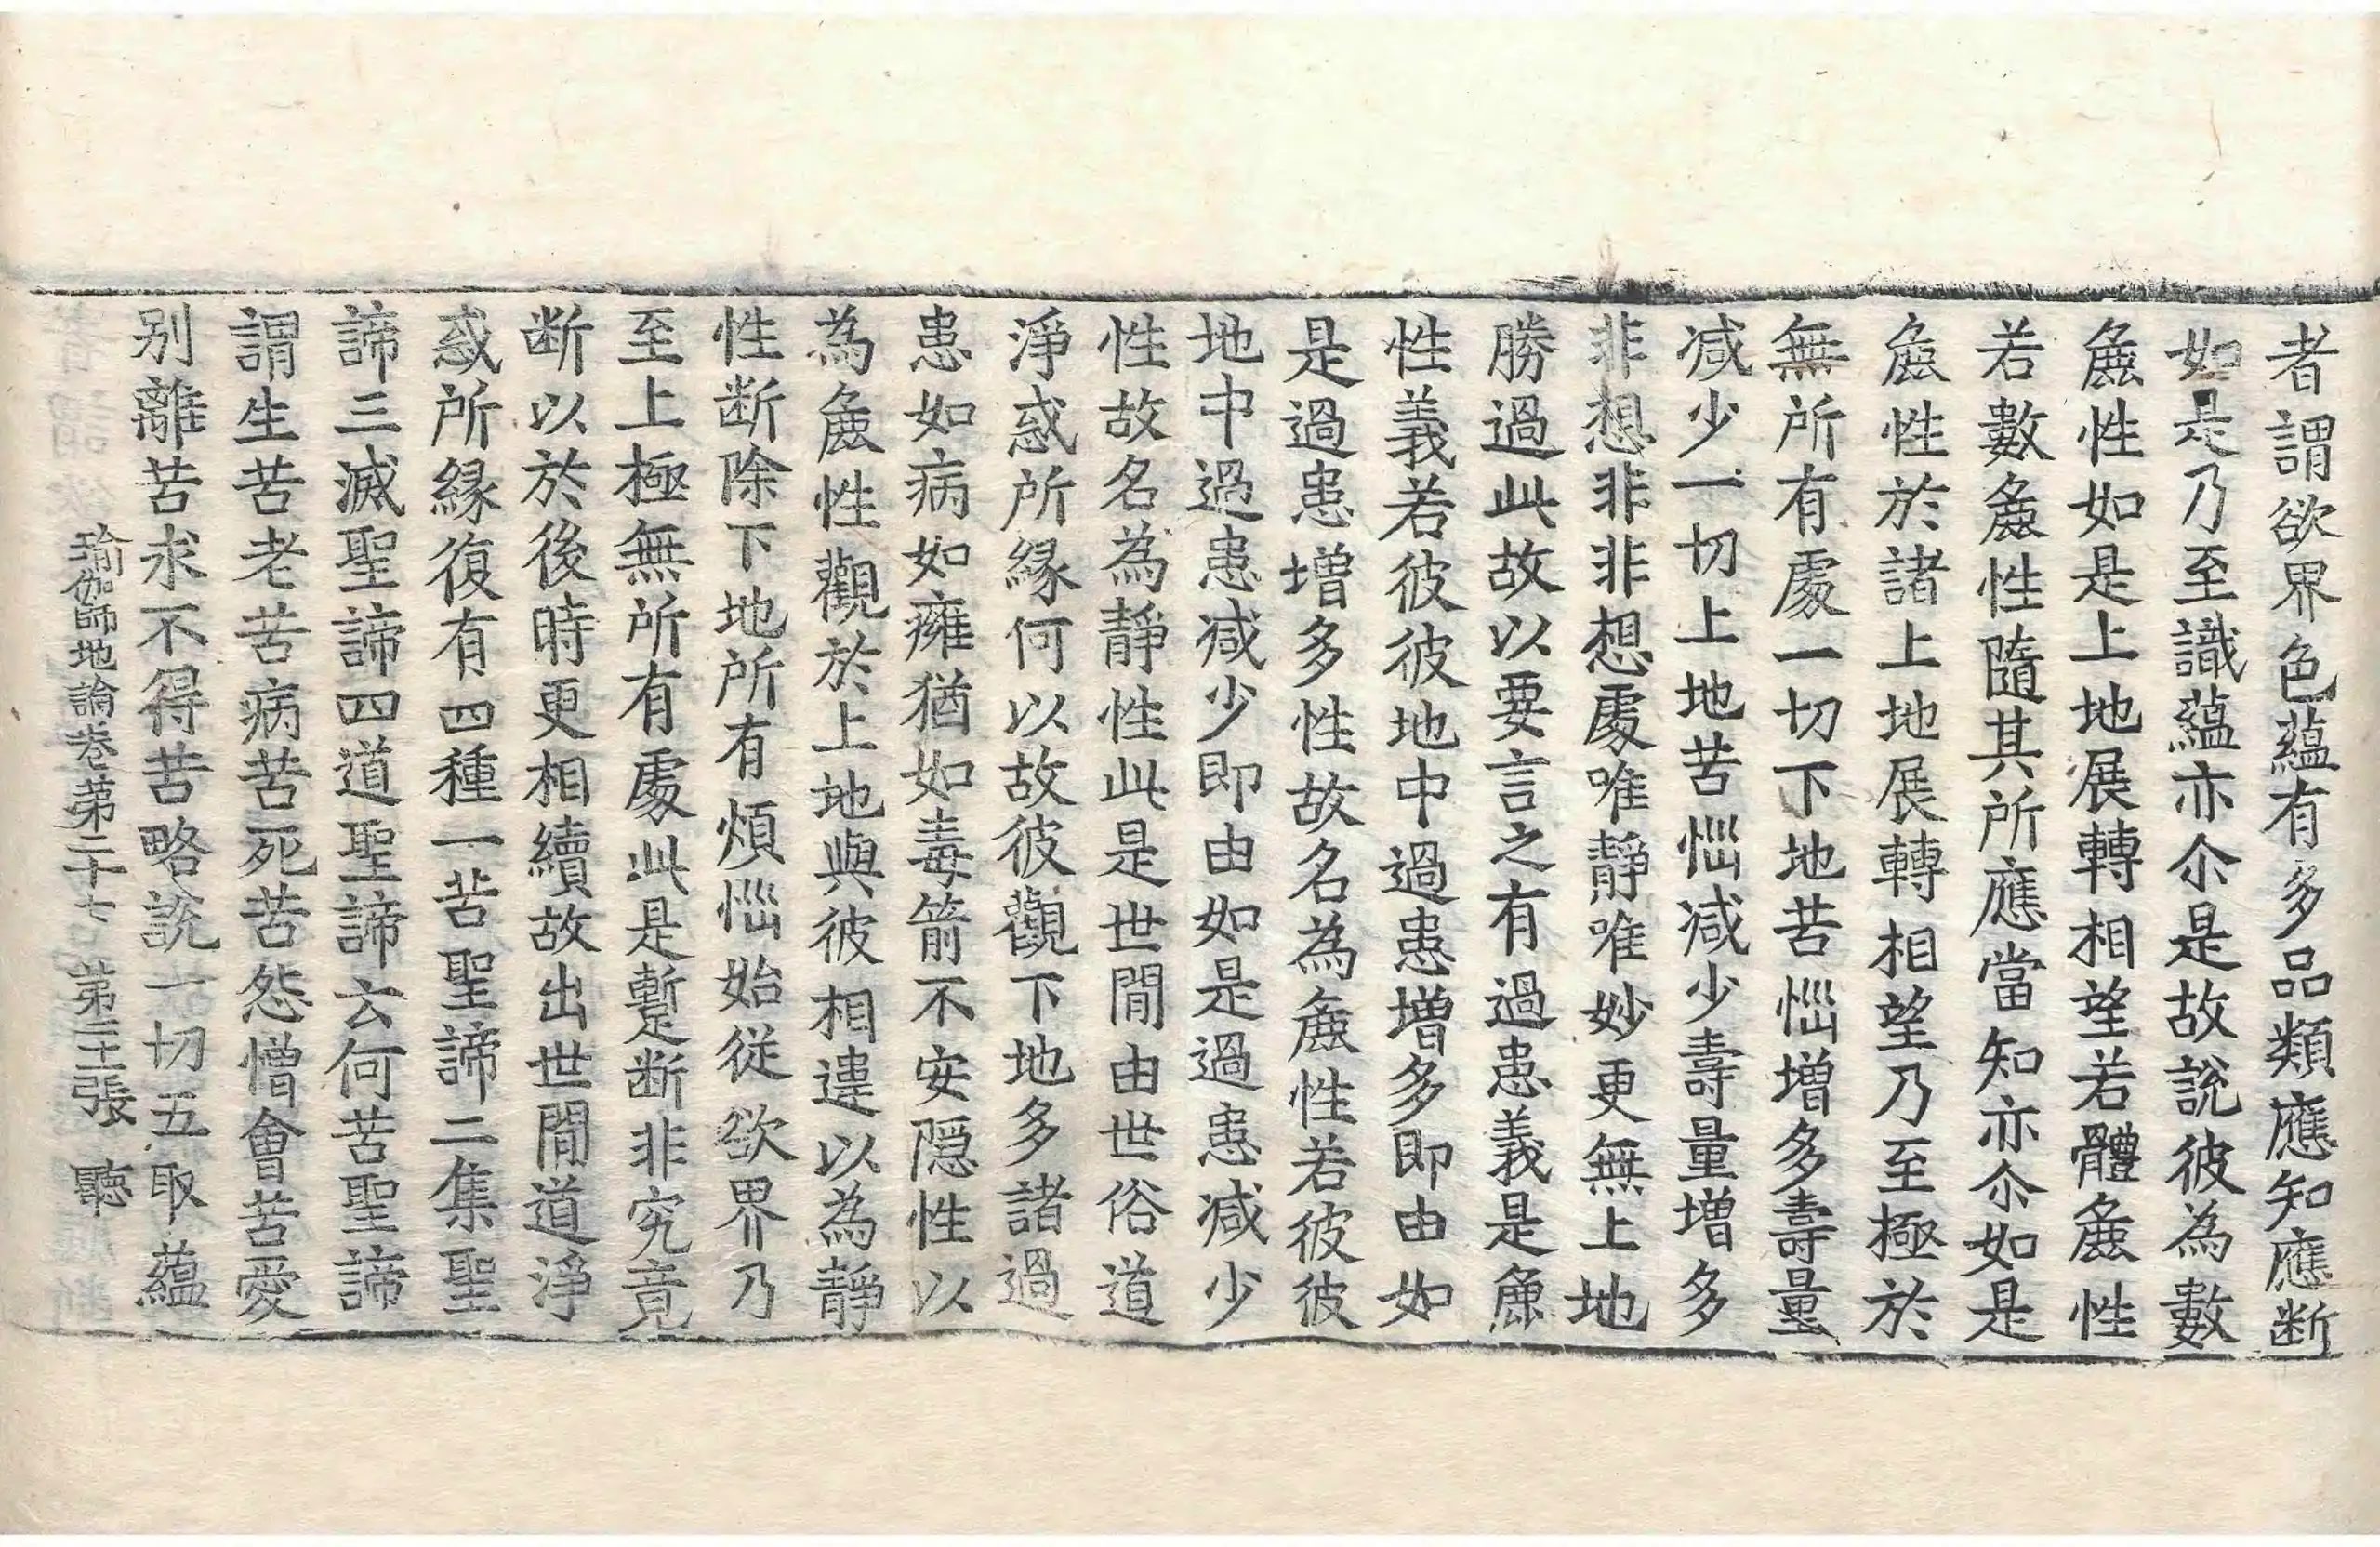 者謂欲界色蘊有多品類應知應断
如是乃至識蘊亦尒是故說彼為數
麁性如是上地展轉相望若體麁性
若數麁性隨其所應當知亦尒如是
麁性於諸上地展轉相望乃至極於
無所有處一切下地苦惱增多壽量
減少一切上地苦惱減少壽量增多
非想非非想處唯靜唯妙更無上地
勝過此故以要言之有過患義是麁
性義若彼彼地中過患增多即由如
是過患增多性故名為麁性若彼彼
地中過患減少即由如是過患減少
性故名為靜性此是世間由世俗道
淨惑所緣何以故彼觀下地多諸過
患如病如癰猶如毒箭不安隱性以
為麁性觀於上地與彼相違以為靜
性断除下地所有煩惱始從欲界乃
至上極無所有處此是蹔断非究竟
断以於後時更相續故出世間道淨
惑所緣復有四種一苦聖諦二集聖
諦三滅聖諦四道聖諦云何苦聖諦
謂生苦老苦病苦死苦怨憎會苦愛
別離苦求不得苦略說一切五取蘊
瑜伽師地論卷第二十七 第二十二張 聽